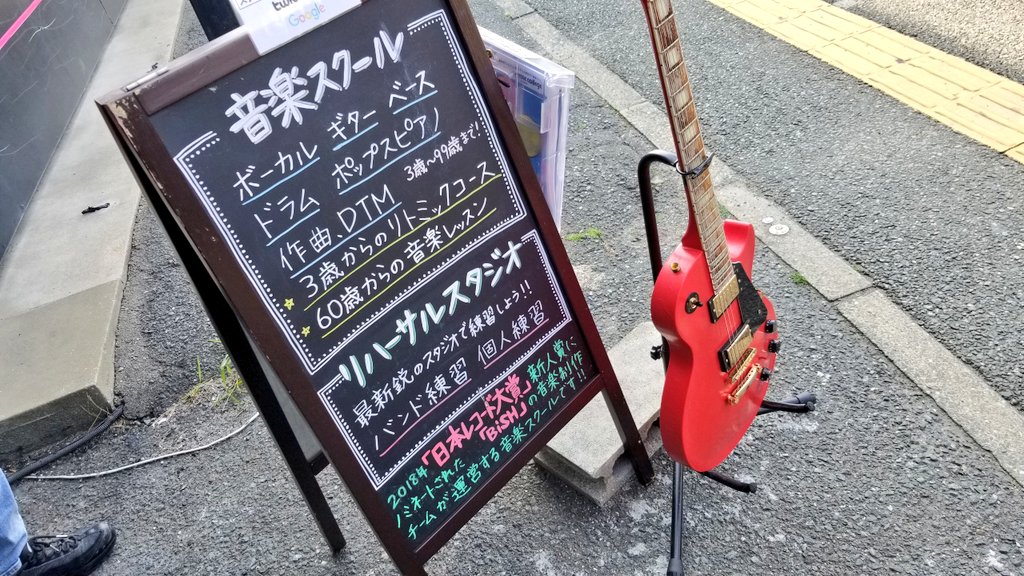 Google
音楽スクール
ボーカル ギター ベース
ドラム ポップスピアノ
作曲.DTM 3歳〜99歳まで!
3歳からのリトミックコース
60歳からの音楽レッスン
リハーサルスタジオ
最新鋭のスタジオで練習しよう!!
バンド練習 個人練習
2018年「日本レコード大賞」新人賞に
ノミネートされた「BiSH」の音楽制作
チームが運営する音楽スクールです!!